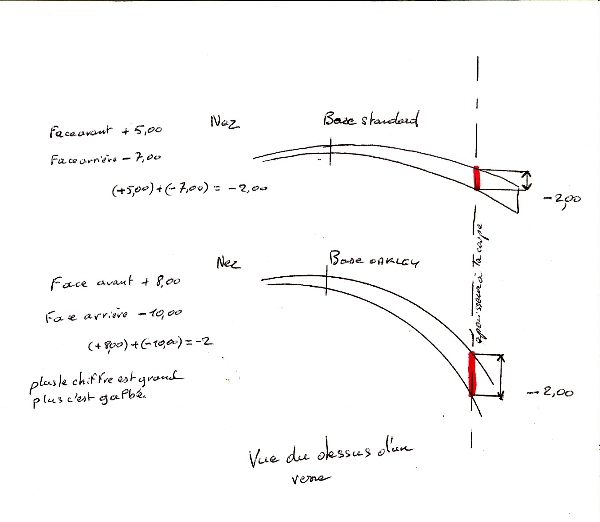 Nez
Base standard
Face avant + 5,00
Face arrière - 7,00
(+5,00)+(-7,00) = -2,00
-2,00
épaisseur à la coupe
Nez
Base OAKLEY
Face avant + 8,00
Face arrière - 10,00
(+8,00)+(-10,00) = -2
plus le chiffre est grand
plus c'est galbé.
-2,00
Vue du dessus d'un
verre